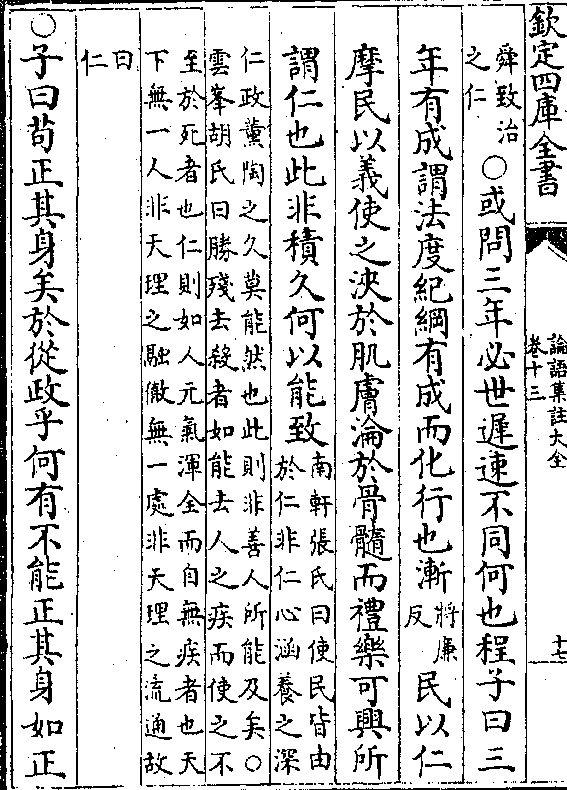 欽定四庫全書
論語集註大全
卷十三
十七
舜致治
之仁
○或問三年必世遲速不同何也程子曰三
年有成謂法度紀綱有成而化行也漸
將廉
反
民以仁
摩民以義使之浹於肌膚淪於骨髓而禮樂可興所
謂仁也此非積久何以能致
南軒張氏曰使民皆由
於仁非仁心涵養之深
仁政薰陶之久莫能然也此則非善人所能及矣○
雲峯胡氏曰勝殘去殺者如能去人之疾而使之不
至於死者也仁則如人元氣渾全而自無疾者也天
下無一人非天理之融徹無一處非天理之流通故
曰
仁
○子曰苟正其身矣於從政乎何有不能正其身如正